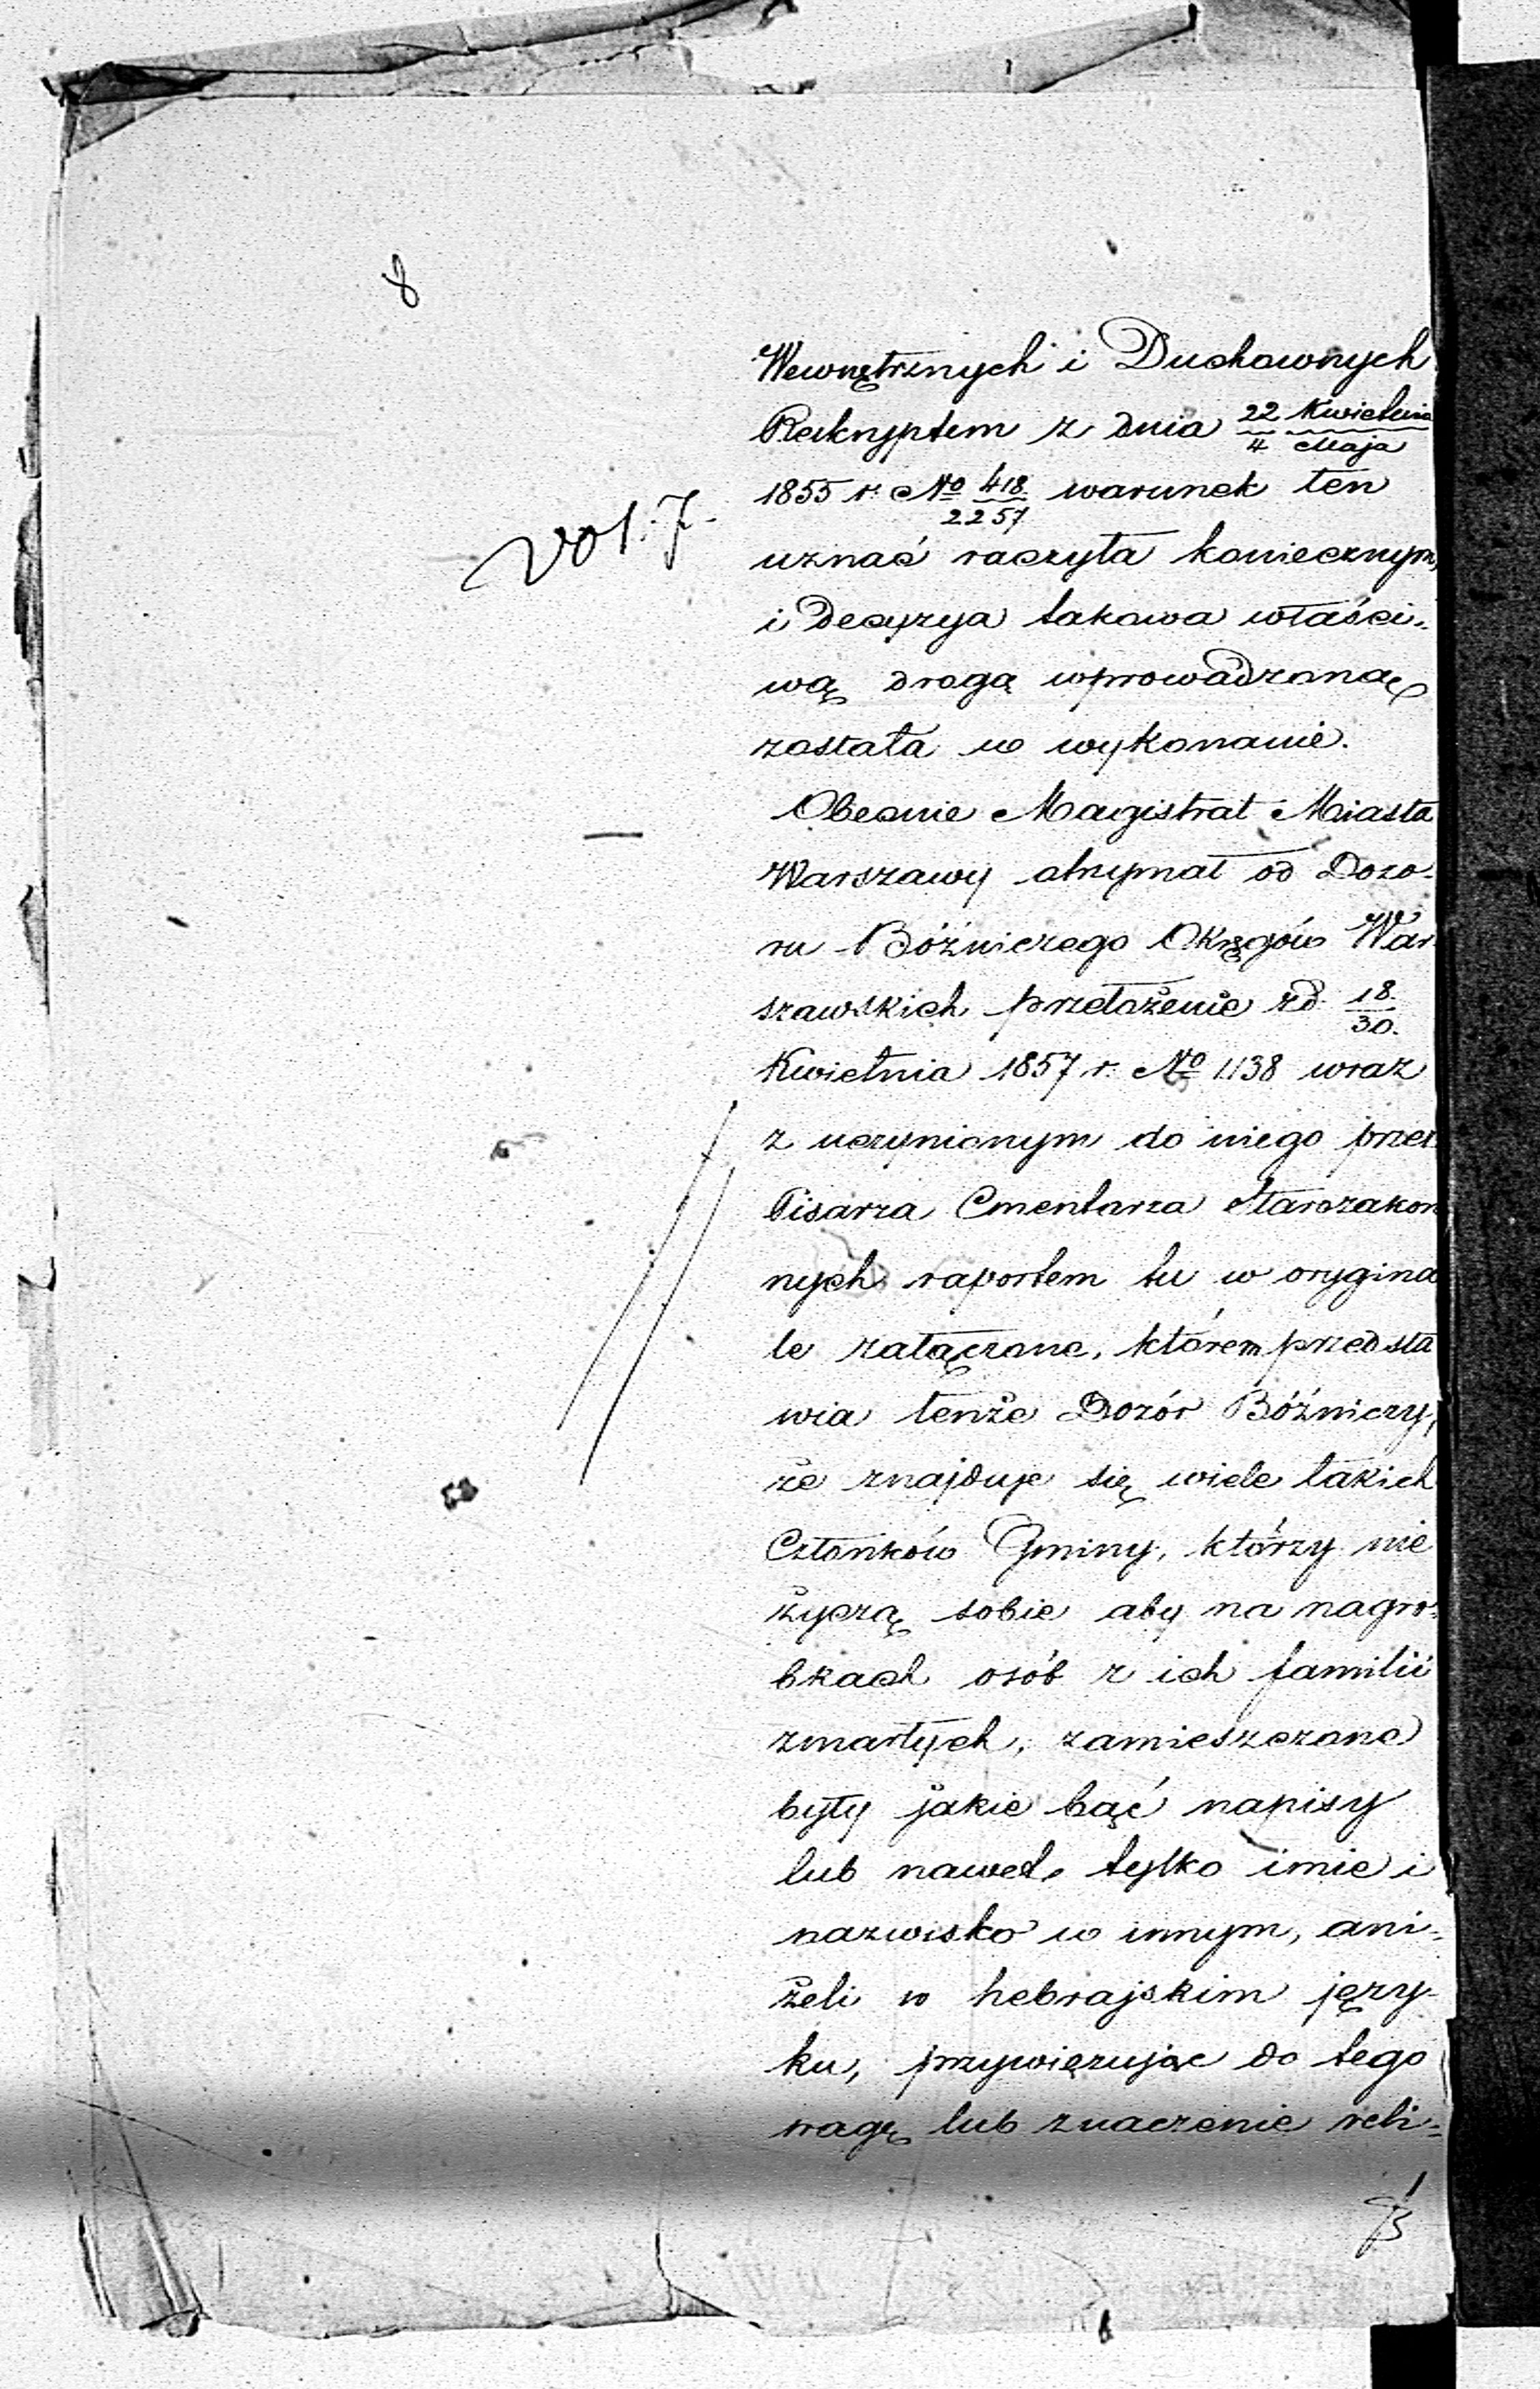 8
Wewnętrznych i Duchownych
Reskryptem z dnia 22/4 Kwietnia/Maja
1855 r. No 418/2257 warunek ten
vol. 7.
uznać raczyła koniecznym,
i Decyzya takowa właści-
wą drogą wprowadzoną
została w wykonanie.
Obecnie Magistrat Miasta
Warszawy otrzymał od Dozo-
ru Bóźniczego Okręgów War
szawskich przełożenie zd. 18/30.
Kwietnia 1857 r. No 1138 wraz
z uczynionym do niego przez
Pisarza Cmentarza Starozakon
nych raportem tu w orygina
le załączone, którem przedsta
wia tenże Dozór Bóźniczy,
że znajduje się wiele takich
Członków Gminy, którzy nie
życzą sobie aby na nagro-
bkach osób z ich familii
zmarłych, zamieszczone
były jakie bąć napisy
lub nawet tylko imie i
nazwisko w innym, ani-
żeli w hebrajskim języ-
ku, przywięzując do tego
wagę lub znaczenie reli-